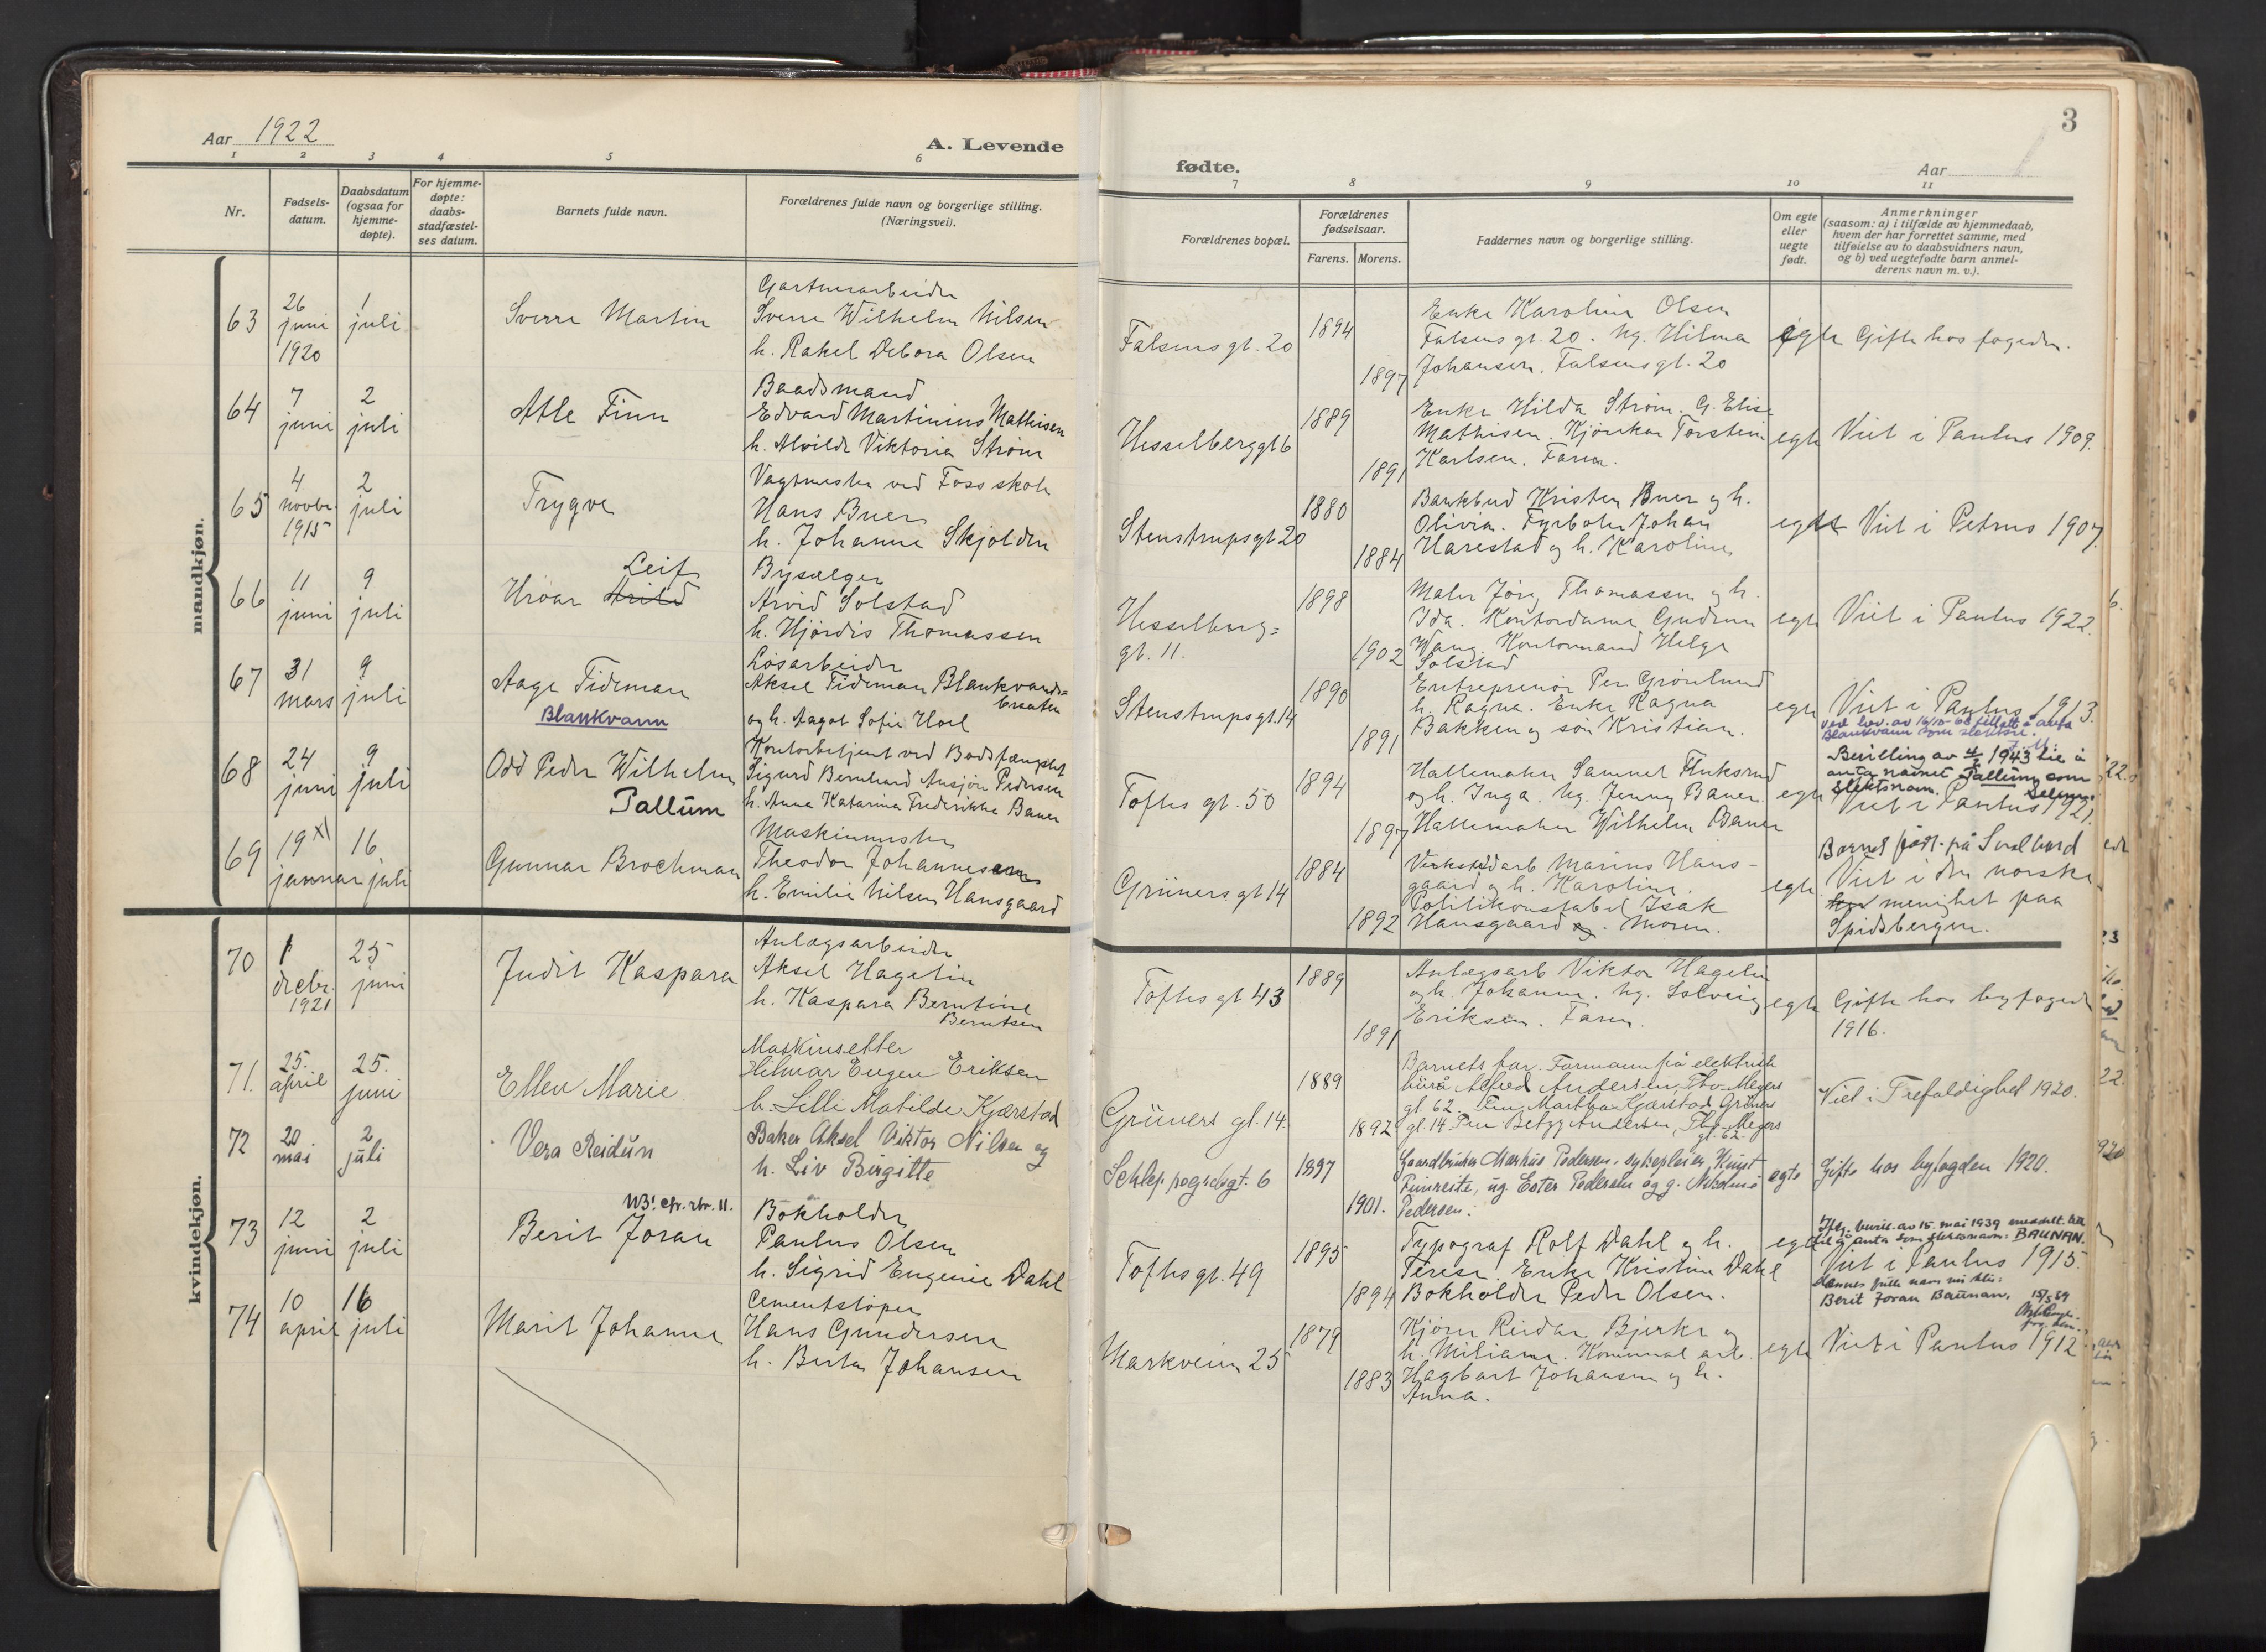 Aar 1922
A. Levende
1 2 3 4 5 6
Nr.
Fødsels-
datum.
Daabsdatum
(ogsaa for
hjemme-
døpte).
For hjemme-
døpte:
daabs-
stadfæstel-
ses datum.
Barnets fulde navn.
Forældrenes fulde navn og borgerlige stilling.
(Næringsvei).
mandkjøn.
63
26
juni
1920
1
juli
Sverre Martin
Gartnerarbeider
Sverre Wilhelm Nilsen
h. Rakel Debora Olsen
64
7
juni
2
juli
Atle Finn
Baadsmand
Edvard Martinius Mathisen
h. Alvilde Viktoria Strøm
65
4
novbr.
1915
2
juli
Trygve
Vagtmester ved Foss skole
Hans Buer
h. Johanne Skjolden
66
11
juni
9
juli
Leif
Hroar Arild
Bysælger
Arvid Solstad
h. Hjørdis Thomassen
67
31
mars
9
juli
Aage Tideman
Blankvann
Løsarbeider
Aksel Tideman Blankvands=
braaten
og h. Aagot Sofie Hoel
68
24
juni
9
juli
Odd Peder Wilhelm
Pallum
Kontorbetjent ved Bodsfængslet
Sigurd Bernhard Ansjøn Pedersen
h. Anna Katarina Frederikke Bauer
69
19 x)
januar
16
juli
Gunnar Brochman
Maskinmester
Theodor Johannesen
h. Emilie Nilsen Hansgaard
kvindekjøn.
70
1
decbr.
1921
25
juni
Judit Kaspara
Anlægsarbeider
Aksel Hagelin
h. Kaspara Berntine
Berntsen
71.
25.
april
25.
juni
Ellen Marie
Maskinsetter
Hilmar Eugen Eriksen
h. Lilli Matilde Kjærstad
72
20
mai
2
juli
Vera Reidun
Baker Aksel Viktor Nilsen og
h. Liv Birgitte
73
12
juni
2
juli
NB! cfr. rbr. 11.
Berit Joran
Bokholder
Paulus Olsen
h. Sigrid Eugenie Dahl
74
10
april
16
juli
Marit Johanne
Cementstøper
Hans Gundersen
h. Berta Johansen
3
fødte.
Aar
7 8 9 10 11
Forældrenes bopæl.
Forældrenes
fødselsaar.
Farens. Morens.
Faddernes navn og borgerlige stilling.
Om egte
eller
uegte
født.
Anmerkninger
(saasom: a) i tilfælde av hjemmedaab,
hvem der har forrettet samme, med
tilføielse av to daabsvidners navn,
og b) ved uegtefødte barn anmel-
derens navn m. v.).
Falsens gt. 20
1894
1897
Enke Karoline Olsen
Falsens gt. 20. Ug. Hilma
Johansen. Falsens gt. 20
egte
Gifte hos fogden.
Hesselberggt 6
1889
1891
Enke Hilda Strøm. G. Elise
Mathisen. Kjørekar Torstein
Karlsen. Faren.
egte
Viet i Paulus 1909.
Stenstrupsgt 20
1880
1884
Bankbud Kristen Buer og h.
Olivia. Fyrbøter Johan
Harestad og h. Karoline
egte
Viet i Petrus 1907.
Hesselberg=
gt. 11.
1898
1902
Maler Jørg. Thomassen og h.
Ida. Kontordame Gudrun
Wang. Kontormand Helge
Solstad
egte
Viet i Paulus 1922.
Stenstrupsgt. 14
1890
1891
Entreprenør Per Grønlund
h. Ragna. Enke Ragna
Bakken og søn Kristian.
egte
Viet i Paulus 1913.
Blankvann som slektsn.
Toftes gt. 50
1894
1897
Hallemaker Samuel
og h. Inga. Ug. Jenny Bauer.
Hallemaker Wilhelm Bauer
egte
Bevilling av 4/2 1943 til å
anta navnet Pallum som
slektsnavn.
Viet i Paulus 1921.
Grüners gt 14
1884
1892
Verkstedarb Marius Hans-
gaard og h. Karoline.
Politikonstabel Isak
Hansgaard og. Moren.
egte
Barnet født på Svalbard
Viet i den norske
menighet paa
Spidsbergen.
Toftes gt 43
1889
1891
Anlægsarb Viktor Hagelin
og h. Johanne. Ug. Solveig
Eriksen. Faren.
egte
Gifte hos byfogden
1916.
Grüners gt. 14.
1889
1892
Barnets far. Formann på elektrisk
byrå Alfred Andersen, Thv. Meyers
gt. 62. Fru Martha Kjærstad Grüners
gt. 14. Fru Betzy Andersen, Thv. Meyers
gt. 62.
Viet i Trefoldighed 1920.
Schleppegrelsgt. 6
1897
1901.
Gaardbruker Markus Pedersen, sykepleier Kunst
Finreite, ug. Ester Pedersen og g. Nikoline
Pedersen.
egte
Gifte hos byfogden 1920.
Toftes gt. 49
1895
1894
Typograf Rolf Dahl og h.
Terese. Enke Kristine Dahl
Bokholder Peder Olsen.
egte
Iflg. bevil. av 15. mai 1939 meddelt till.
til å anta som slektsnavn: BAUNAN.
Viet i Paulus 1915.
Hennes fulle navn nu blir:
Berit Joran Baunan.
Markveien 25
1879
1883
Kjører Reidar Bjerke og
h. Miliane. Kommunal arb.
Hagbart Johansen og h.
Anna.
egte
Viet i Paulus 1912.